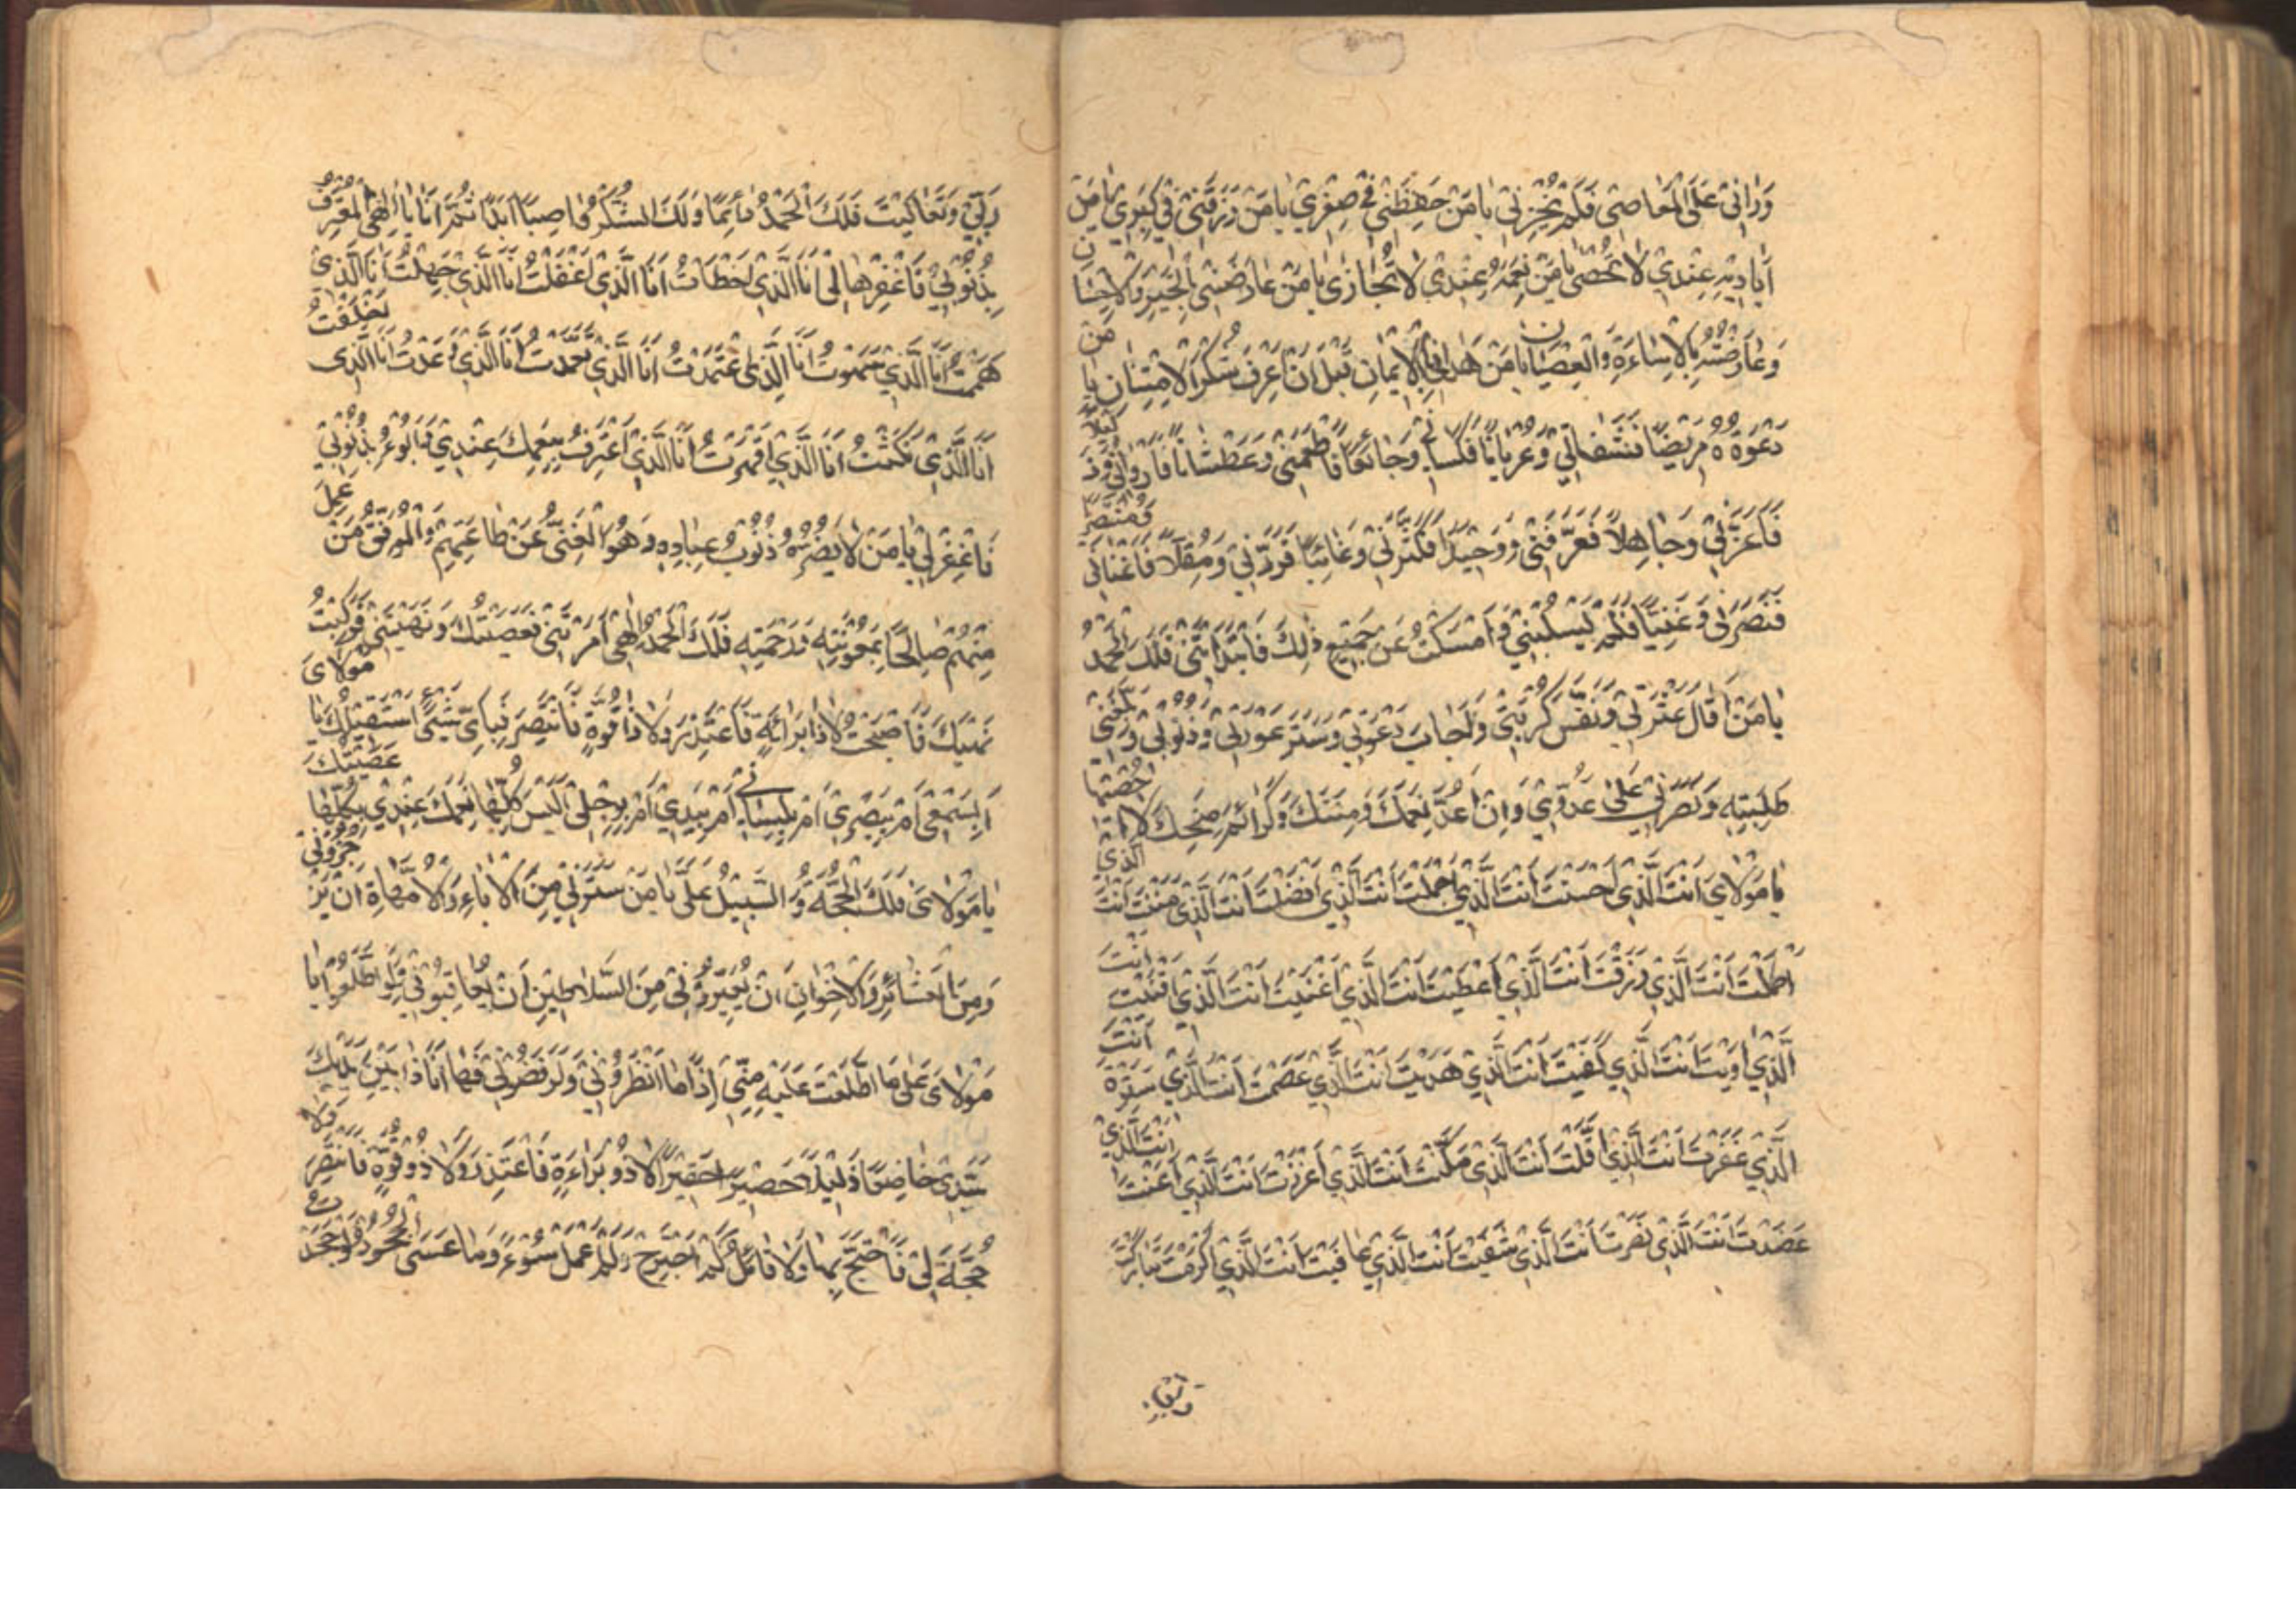 وَرَانِي عَلَى الْمَعَاصِي فَلَمْ يُخْزِنِي يَا مَنْ حَفِظَنِي فِي صِغَرِي يَا مَنْ رَزَقَنِي فِي كِبَرِي يَا مَنْ
أَيَادِيهِ عِنْدِي لَا تُحْصَى يَا مَنْ نِعَمُهُ عِنْدِي لَا تُجَازَى يَا مَنْ عَارَضَنِي بِالْخَيْرِ وَالْإِحْسَانِ
وَعَارَضْتُهُ بِالْإِسَاءَةِ وَالْعِصْيَانِ يَا مَنْ هَدَانِي بِالْإِيمَانِ قَبْلَ أَنْ أَعْرِفَ شُكْرَ الْإِمْتِنَانِ يَا مَنْ
دَعَوْتُهُ مَرِيضًا فَشَفَانِي وَعُرْيَانًا فَكَسَانِي وَجَائِعًا فَأَطْعَمَنِي وَعَطْشَانًا فَأَرْوَانِي وَذَلِيلًا
فَأَعَزَّنِي وَجَاهِلًا فَعَرَّفَنِي وَوَحِيدًا فَكَثَّرَنِي وَغَائِبًا فَرَدَّنِي وَمُقِلًّا فَأَغْنَانِي وَمُنْتَصِرًا
فَنَصَرَنِي وَغَنِيًّا فَلَمْ يَسْلُبْنِي وَأَمْسَكْتُ عَنْ جَمِيعِ ذَلِكَ فَابْتَدَأَنِي فَلَكَ الْحَمْدُ
يَا مَنْ أَقَالَ عَثْرَتِي وَنَفَّسَ كُرْبَتِي وَأَجَابَ دَعْوَتِي وَسَتَرَ عَوْرَتِي وَذُنُوبِي وَبَلَّغَنِي
طَلِبَتِهِ وَنَصَرَنِي عَلَى عَدُوِّي وَإِنْ أَعُدَّ نِعَمَكَ وَمِنَنَكَ وَكَرَائِمَ مِنَحِكَ لَا أُحْصِيهَا
يَا مَوْلَايَ أَنْتَ الَّذِي أَحْسَنْتَ أَنْتَ الَّذِي أَجْمَلْتَ أَنْتَ الَّذِي أَفْضَلْتَ أَنْتَ الَّذِي مَنَنْتَ أَنْتَ الَّذِي
أَكْمَلْتَ أَنْتَ الَّذِي رَزَقْتَ أَنْتَ الَّذِي أَعْطَيْتَ أَنْتَ الَّذِي أَغْنَيْتَ أَنْتَ الَّذِي أَقْنَيْتَ أَنْتَ
الَّذِي آوَيْتَ أَنْتَ الَّذِي كَفَيْتَ أَنْتَ الَّذِي هَدَيْتَ أَنْتَ الَّذِي عَصَمْتَ أَنْتَ الَّذِي سَتَرْتَ أَنْتَ
الَّذِي غَفَرْتَ أَنْتَ الَّذِي أَقَلْتَ أَنْتَ الَّذِي مَكَّنْتَ أَنْتَ الَّذِي أَعْزَزْتَ أَنْتَ الَّذِي أَعَنْتَ أَنْتَ الَّذِي
عَضَدْتَ أَنْتَ الَّذِي نَصَرْتَ أَنْتَ الَّذِي شَفَيْتَ أَنْتَ الَّذِي عَافَيْتَ أَنْتَ الَّذِي أَكْرَمْتَ تَبَارَكْتَ
رَبِّي وَتَعَالَيْتَ فَلَكَ الْحَمْدُ دَائِمًا وَلَكَ الشُّكْرُ وَاصِبًا أَبَدًا ثُمَّ أَنَا يَا إِلَهِي الْمُعْتَرِفُ
بِذُنُوبِي فَاغْفِرْهَا لِي أَنَا الَّذِي أَخْطَأْتُ أَنَا الَّذِي أَغْفَلْتُ أَنَا الَّذِي جَهِلْتُ أَنَا الَّذِي
هَمَمْتُ أَنَا الَّذِي سَهَوْتُ أَنَا الَّذِي اعْتَمَدْتُ أَنَا الَّذِي تَعَمَّدْتُ أَنَا الَّذِي وَعَدْتُ أَنَا الَّذِي أَخْلَفْتُ
أَنَا الَّذِي نَكَثْتُ أَنَا الَّذِي أَقْرَرْتُ أَنَا الَّذِي أَعْتَرِفُ بِنِعَمِكَ عِنْدِي وَأَبُوءُ بِذُنُوبِي
فَاغْفِرْ لِي يَا مَنْ لَا يَضُرُّهُ ذُنُوبُ عِبَادِهِ وَهُوَ الْغَنِيُّ عَنْ طَاعَتِهِمْ وَالْمُوَفِّقُ مَنْ عَمِلَ
مِنْهُمْ صَالِحًا بِمَعُونَتِهِ وَرَحْمَتِهِ فَلَكَ الْحَمْدُ إِلَهِي أَمَرْتَنِي فَعَصَيْتُكَ وَنَهَيْتَنِي فَرَكِبْتُ
نَهْيَكَ فَأَصْبَحْتُ لَا ذَا بَرَاءَةٍ فَأَعْتَذِرَ وَلَا ذَا قُوَّةٍ فَأَنْتَصِرَ فَبِأَيِّ شَيْءٍ أَسْتَقِيلُكَ يَا مَوْلَايَ
أَبِسَمْعِي أَمْ بِبَصَرِي أَمْ بِلِسَانِي أَمْ بِيَدِي أَمْ بِرِجْلِي أَلَيْسَ كُلُّهَا نِعَمَكَ عِنْدِي بِكُلِّهَا عَصَيْتُكَ
يَا مَوْلَايَ فَلَكَ الْحُجَّةُ وَالسَّبِيلُ عَلَيَّ يَا مَنْ سَتَرَنِي مِنَ الْآبَاءِ وَالْأُمَّهَاتِ أَنْ يَزْجُرُونِي
وَمِنَ الْعَشَائِرِ وَالْإِخْوَانِ أَنْ يُعَيِّرُونِي مِنَ السَّلَاطِينِ أَنْ يُعَاقِبُونِي وَلَوِ اطَّلَعُوا يَا
مَوْلَايَ عَلَى مَا اطَّلَعْتَ عَلَيْهِ مِنِّي إِذًا مَا أَنْظَرُونِي وَلَرَفَضُونِي فَهَا أَنَا ذَا بَيْنَ يَدَيْكَ
سَيِّدِي خَاضِعًا ذَلِيلًا حَصِيرًا حَقِيرًا لَا ذُو بَرَاءَةٍ فَأَعْتَذِرَ وَلَا ذُو قُوَّةٍ فَأَنْتَصِرَ وَلَا
حُجَّةَ لِي فَأَحْتَجَّ بِهَا وَلَا قَائِلٌ لَمْ أَجْتَرِحْ وَلَمْ أَعْمَلْ سُوءً وَمَا عَسَى الْجُحُودُ وَلَوْ جَحَدْتُ